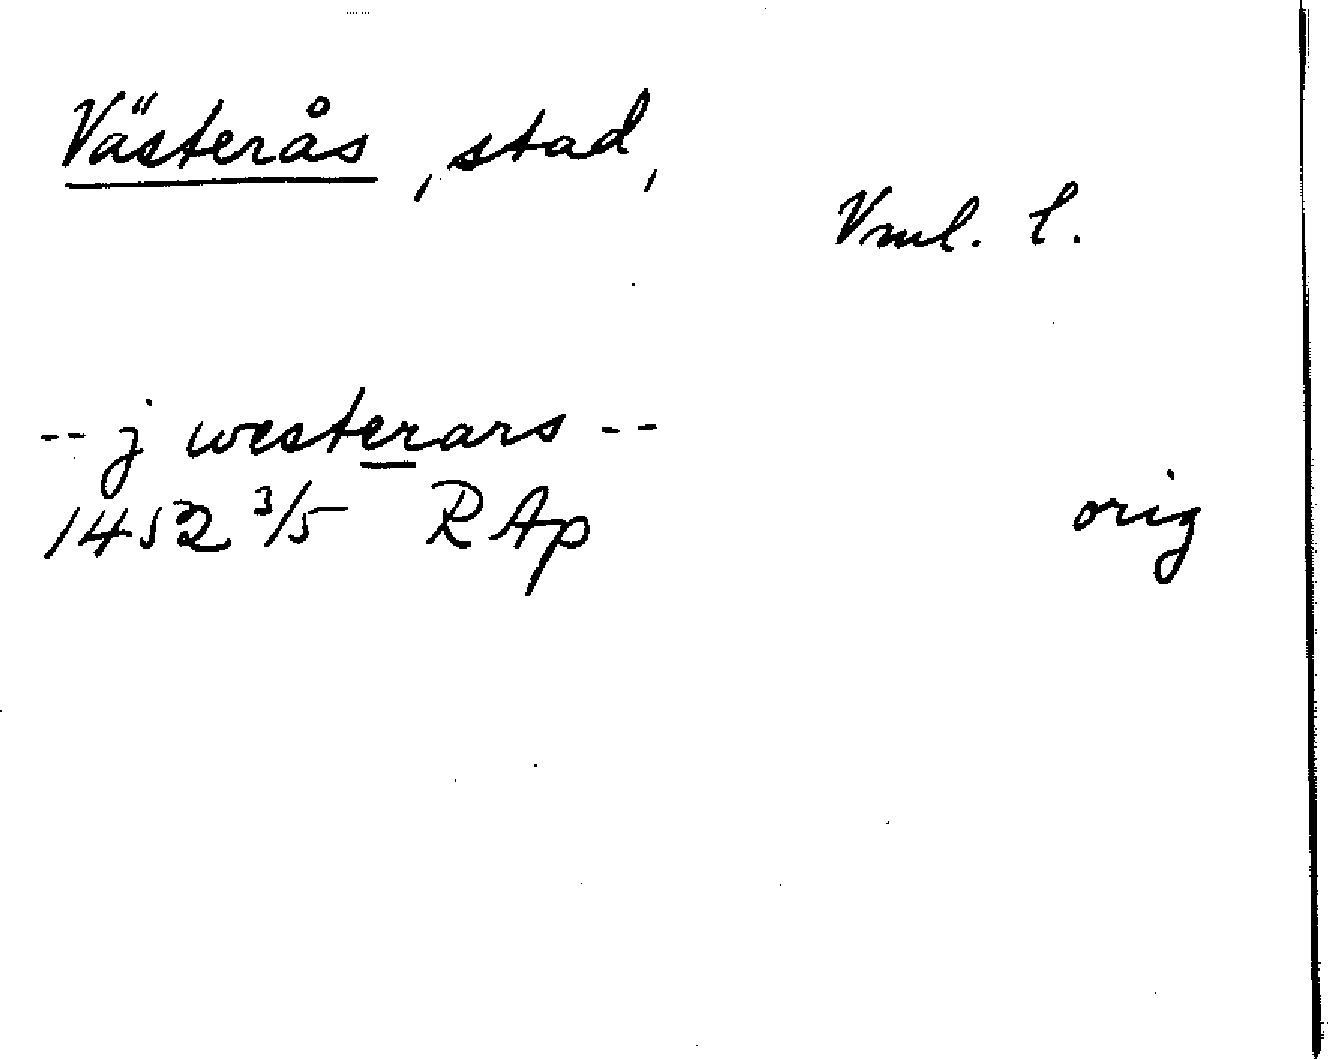 Västerås, stad,
Vml. l.
-- j westerars --
1452 3/5 RAp orig